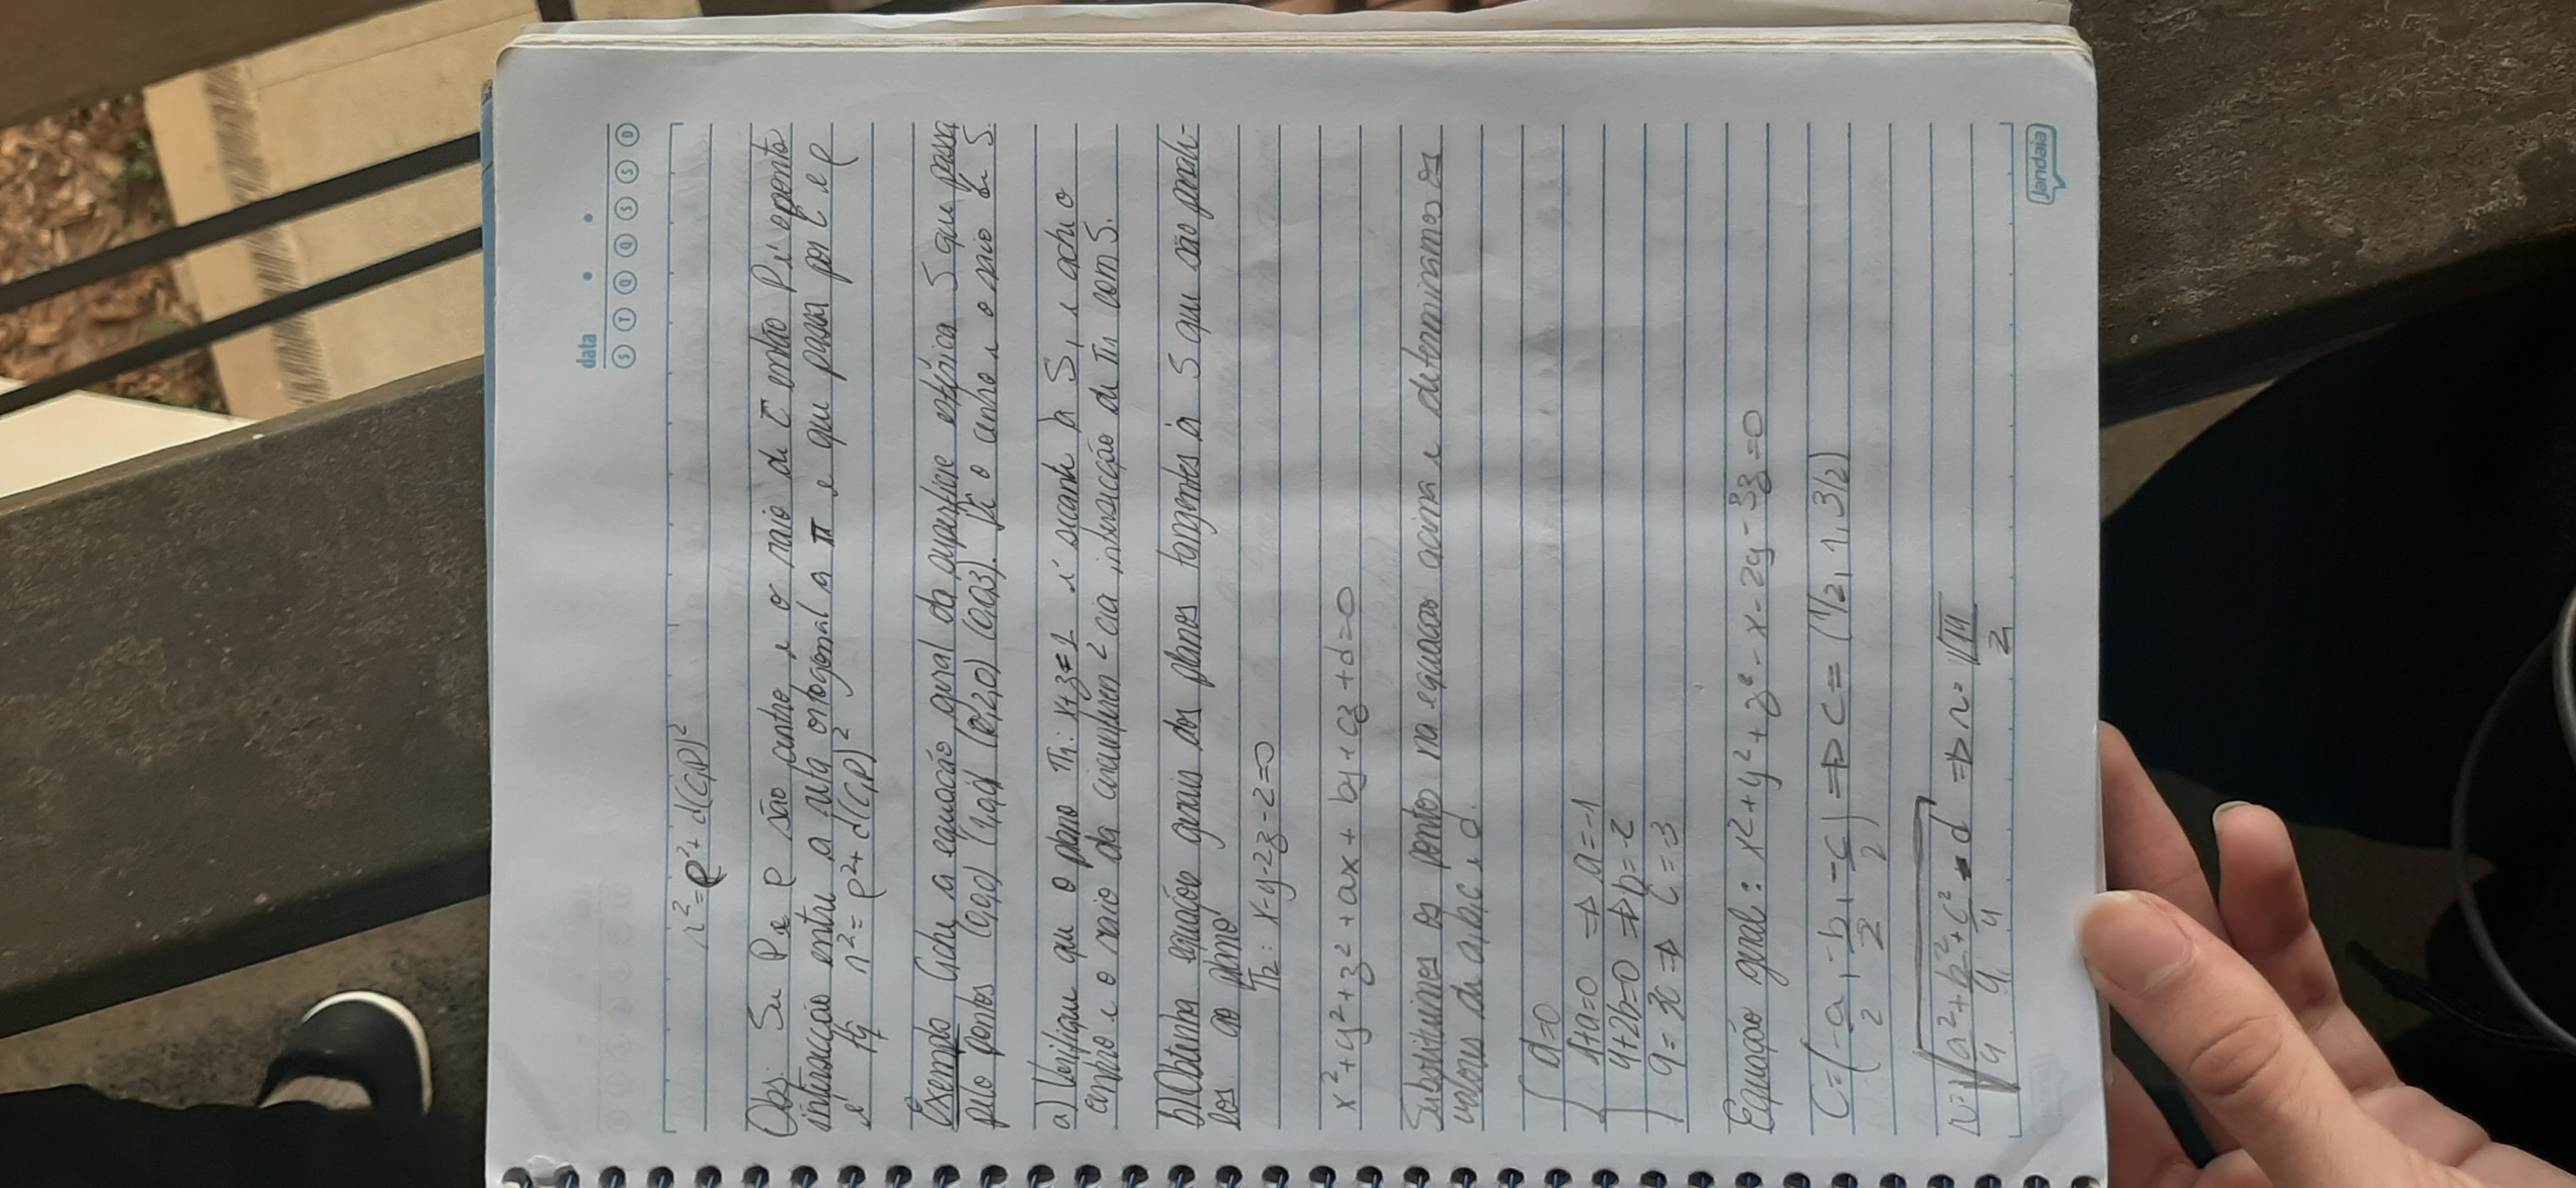 data
S T Q Q S S D
r²=ρ²+ d(C,P)²
Obs: Se P e ρ são centro, e o raio de C então P é o ponto
intersecção entre a reta ortogonal a π e que passa por C e ρ
é tq r²= ρ²+ d(C,P)²
Exemplo Ache a equação geral da superfície esférica S que passa
pelo pontos (0,0,0) (1,0,0) (0,2,0) (0,0,3). Dê o centro e o raio de S.
a) Verifique que o plano π1: x+z=1 é secante à S, e ache o
centro e o raio da circunferen 2 cia intersecção de π1 com S.
b) Obtenha equações gerais dos planos tangentes à S que são parale-
los ao plano
π2: x-y-2z-2=0
x²+y²+z²+ax+by+cz+d=0
Substituimos os pontos na equacao acima e determinamos os
valores de a,b,c e d.
d=0
1+a=0 ⇒ a=-1
4+2b=0 ⇒ b=-2
9=3c ⇒ c=-3
Equação geral: x²+y²+z²-x-2y-3z=0
C=(-a/2, -b/2, -c/2) ⇒ C= (1/2, 1, 3/2)
r=√(a²/4+b²/4+c²/4-d) ⇒ r= √14/2
Jandaia